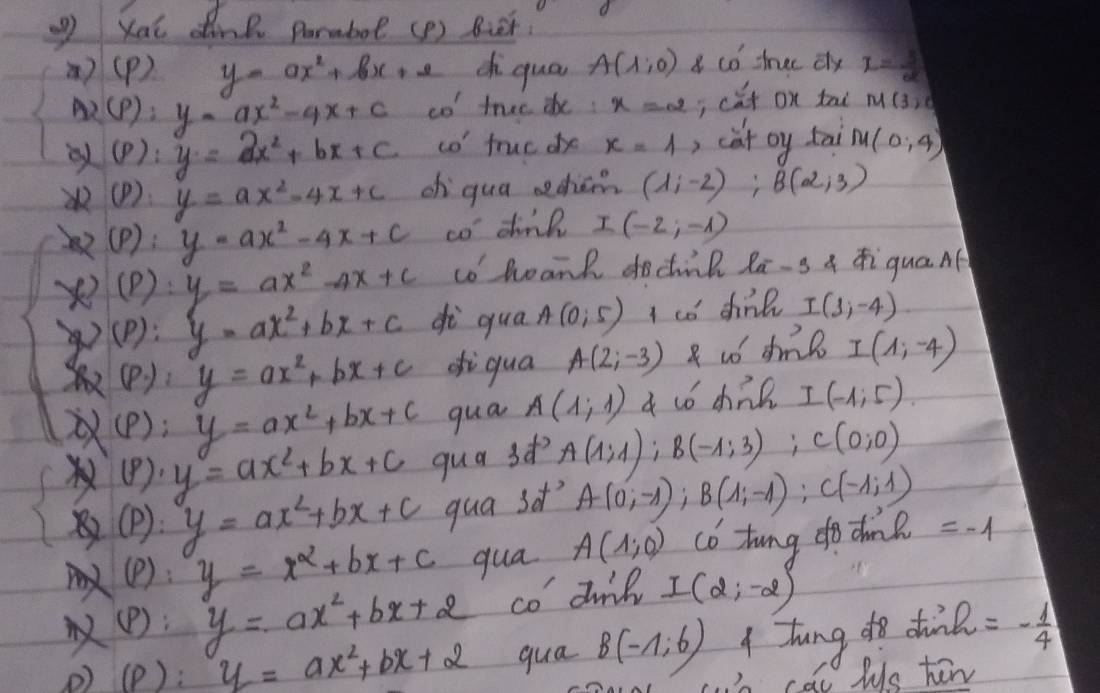 2) Xác định Parabol (P) biết:
a) (P) y = ax² + bx + 2 đi qua A(1;0) & có trục đx x = 3/2
b) (P): y = ax² - 4x + c có trục đx : x = 2; cắt Ox tại M(3;0
c) (P): y = 2x² + bx + c có trục đx x = 1, cắt oy tại M(0;4)
d) (P): y = ax² - 4x + c đi qua 2 điểm (1;-2) ; B(2;3)
e) (P): y = ax² - 4x + c có đỉnh I(-2;-1)
f) (P): y = ax² - 4x + c có hoành độ đỉnh là -3 & đi qua A(-
g) (P): y = ax² + bx + c đi qua A(0;5) & có đỉnh I(3;-4)
h) (P): y = ax² + bx + c đi qua A(2;-3) & có đỉnh I(1;-4)
i) (P): y = ax² + bx + c qua A(1;1) & có đỉnh I(-1;5).
k) (P): y = ax² + bx + c qua 3đ' A(1;1); B(-1;3) ; C(0;0)
(P): y = ax² + bx + c qua 3đ' A(0;-1); B(1;-1); C(-1;1)
m) (P): y = x² + bx + c qua A(1;0) có tung độ đỉnh = -1
n) (P): y = ax² + bx + 2 có đỉnh I(2;-2)
p) (P): y = ax² + bx + 2 qua B(-1;6) & tung độ đỉnh = -1/4
các h/s trên